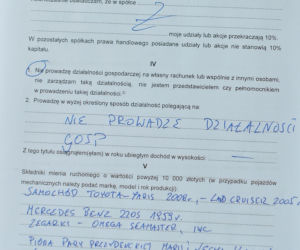 moje udziały lub akcje przekraczają 10%.
W pozostałych spółkach prawa handlowego posiadane udziały lub akcje nie stanowią 10%
kapitału.
IV
1. Nie prowadzę działalności gospodarczej na własny rachunek lub wspólnie z innymi osobami,
nie zarządzam taką działalnością, nie jestem przedstawicielem czy pełnomocnikiem
w prowadzeniu takiej działalności.
2. Prowadzę w wyżej określony sposób działalność polegającą na:
NIE PROWADZĘ DZIAŁALNOŚCI
GOSP
Z tego tytułu w roku ubiegłym dochód w wysokości:
V
Składniki mienia ruchomego o wartości powyżej 10 000 złotych (w przypadku pojazdów
mechanicznych należy podać markę, model i rok produkcji):
SAMOCHÓD TOYOTA YARIS 2008r., - LAND CRUISER 2005
MERCEDES BENZ 220S 1959r.
ZEGARKI - OMEGA SEAMASTER, IWC
PIÓRA PARY PREZYDENCKIEJ MARII I LECHA